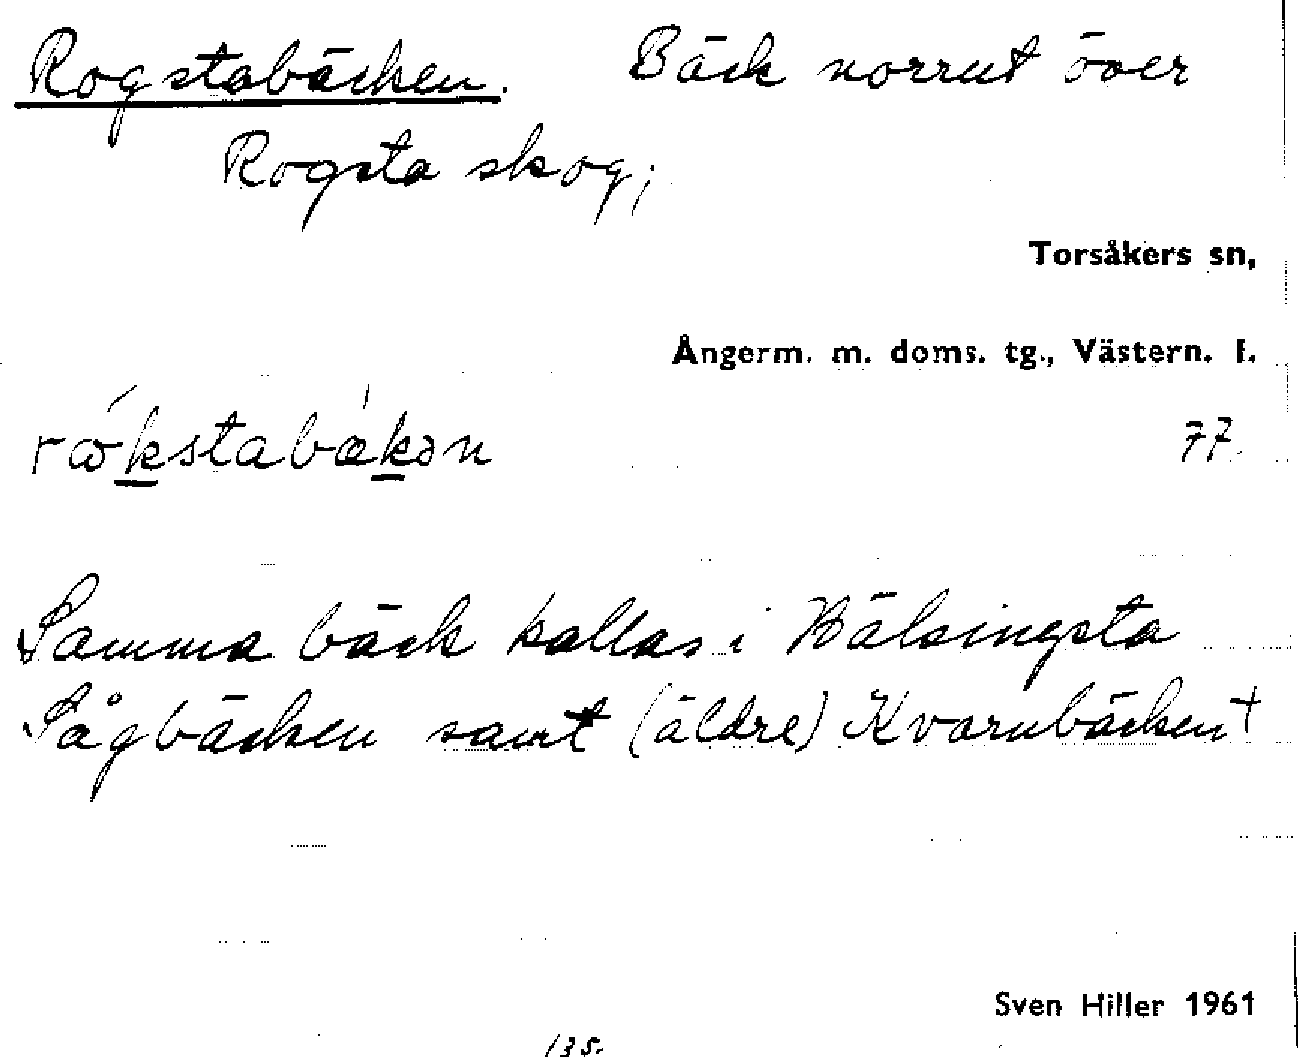 Rogstabäcken. Bäck norrut över
Rogsta skog;
Torsåkers sn,
Ångerm. m. doms. tg., Västern. l.
rώkstabæ̀kən 77.
Samma bäck kallas i Hälsingsta
Sågbäcken samt (äldre) Kvarnbäcken +
Sven Hiller 1961
135.